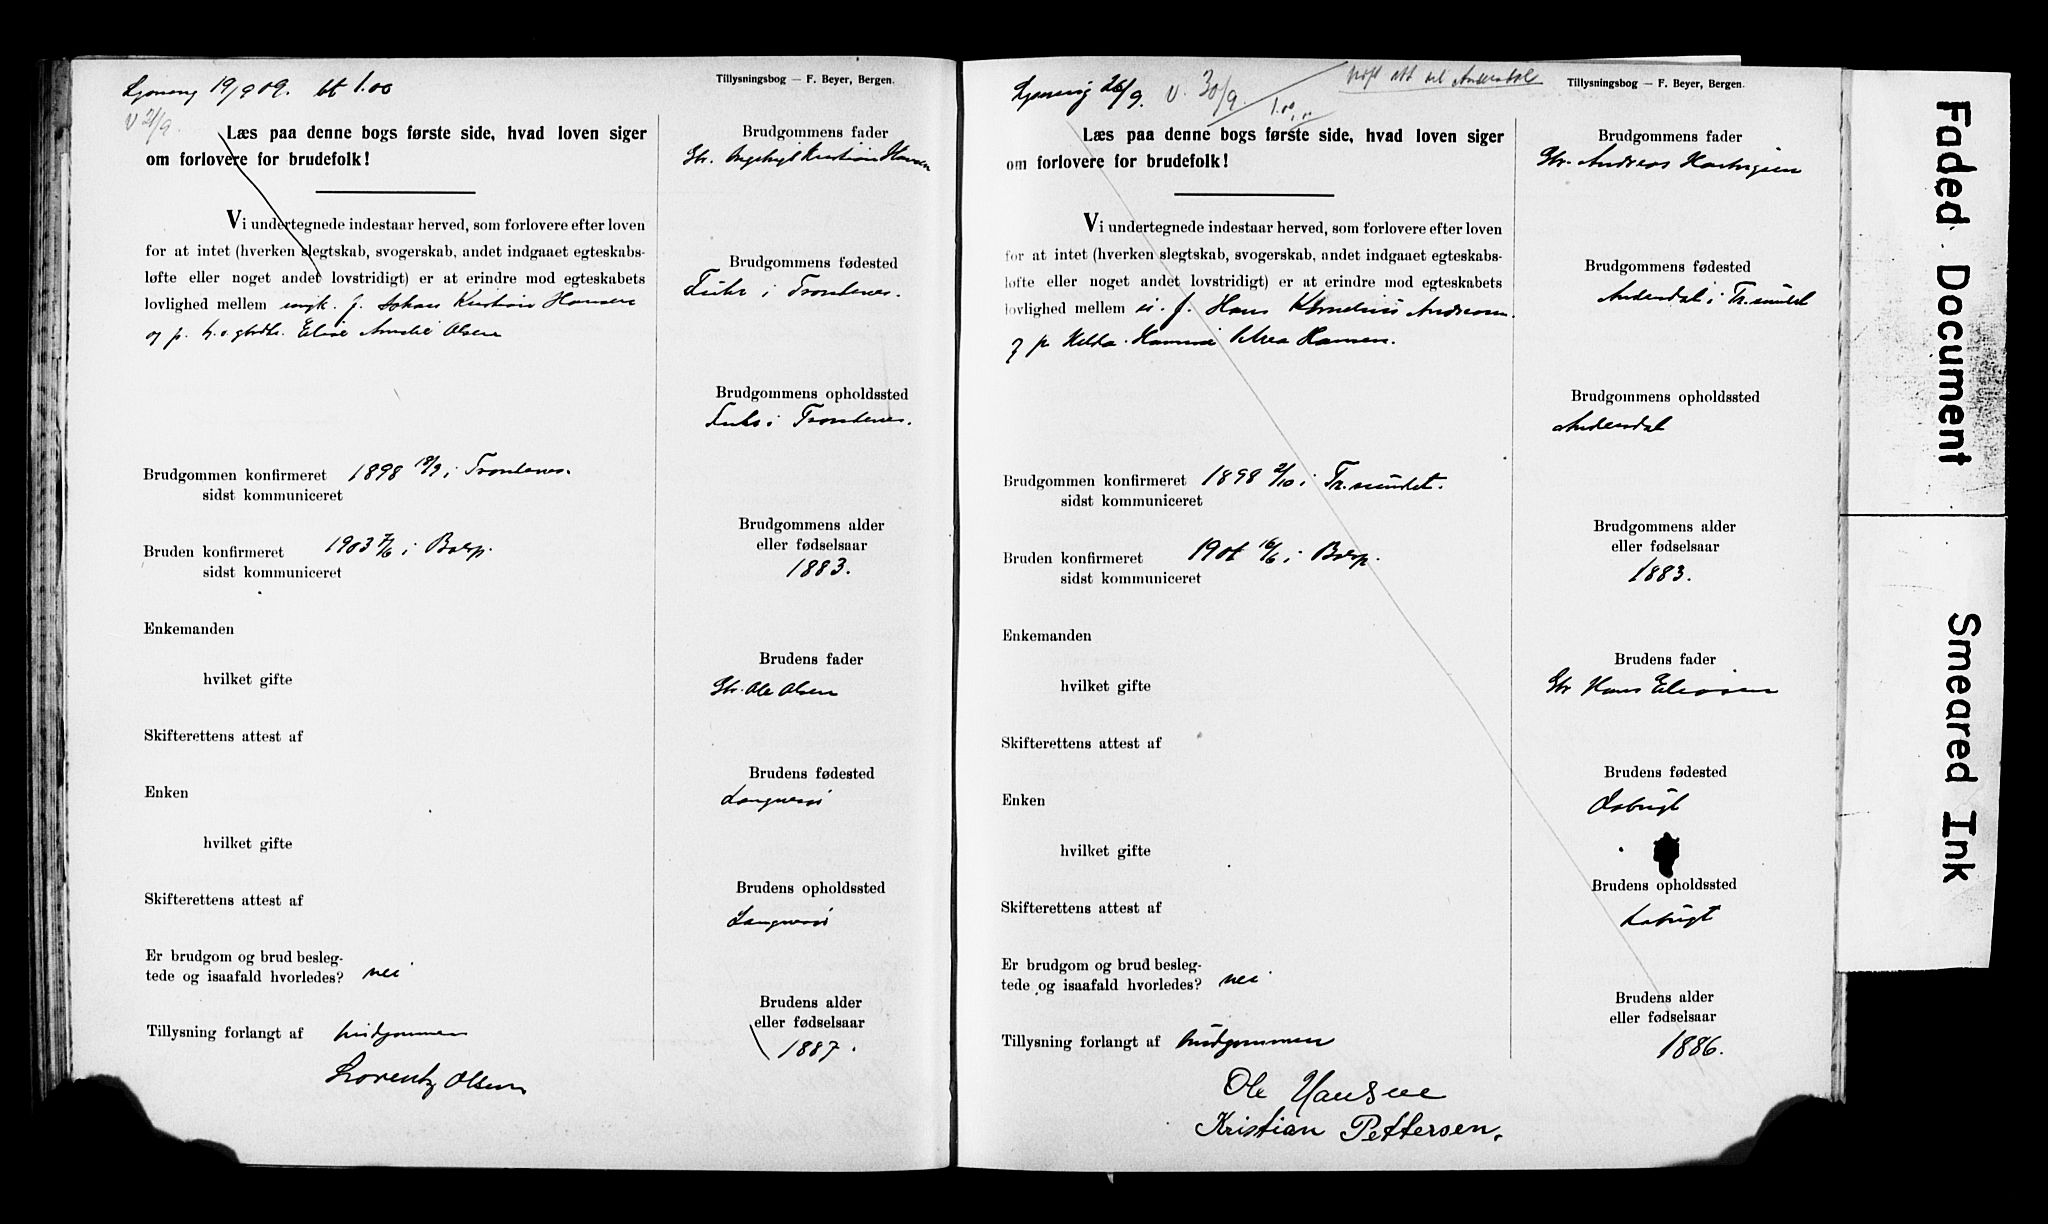 19/9 09. bt 1.00
Tillysningsbog — F. Beyer, Bergen.
V 21/9.
Læs paa denne bogs første side, hvad loven siger
om forlovere for brudefolk!
Vi undertegnede indestaar herved, som forlovere efter loven
for at intet (hverken slegtskab, svogerskab, andet indgaaet egteskabs-
løfte eller noget andet lovstridigt) er at erindre mod egteskabets
lovlighed mellem ungk. f. Johan Kristian Hansen
og p. Elise Olsen
Brudgommen konfirmeret 1898 i Trondenes.
sidst kommuniceret
Bruden konfirmeret 1903 7/6 i
sidst kommuniceret
Enkemanden
hvilket gifte
Skifterettens attest af
Enken
hvilket gifte
Skifterettens attest af
Er brudgom og brud besleg-
tede og isaafald hvorledes? nei
Tillysning forlangt af brudgommen
Lorentz Olsen
Brudgommens fader
Kristian Hansen
Brudgommens fødested
i Trondenes.
Brudgommens opholdssted
i Trondenes.
Brudgommens alder
eller fødselsaar
1883.
Brudens fader
Gbr. Ole Olsen
Brudens fødested
Brudens opholdssted
Brudens alder
eller fødselsaar
1887.
26/9. V. 30/9. 1.00
Tillysningsbog — F. Beyer, Bergen.
Læs paa denne bogs første side, hvad loven siger
om forlovere for brudefolk!
Vi undertegnede indestaar herved, som forlovere efter loven
for at intet (hverken slegtskab, svogerskab, andet indgaaet egteskabs-
løfte eller noget andet lovstridigt) er at erindre mod egteskabets
lovlighed mellem f. Hans Kornelius Andreasen.
og p Hansen.
Brudgommen konfirmeret 1898 2/10 i Tr.sundet.
sidst kommuniceret
Bruden konfirmeret 16/6 i
sidst kommuniceret
Enkemanden
hvilket gifte
Skifterettens attest af
Enken
hvilket gifte
Skifterettens attest af
Er brudgom og brud besleg-
tede og isaafald hvorledes? nei
Tillysning forlangt af brudgommen
Ole Hansen
Kristian Pettersen.
Brudgommens fader
Gbr. Andreas
Brudgommens fødested
Andersdal i Tr.sundet
Brudgommens opholdssted
Andersdal
Brudgommens alder
eller fødselsaar
1883.
Brudens fader
Gbr Hans
Brudens fødested
Brudens opholdssted
Brudens alder
eller fødselsaar
1886.
Faded Document
Smeared Ink